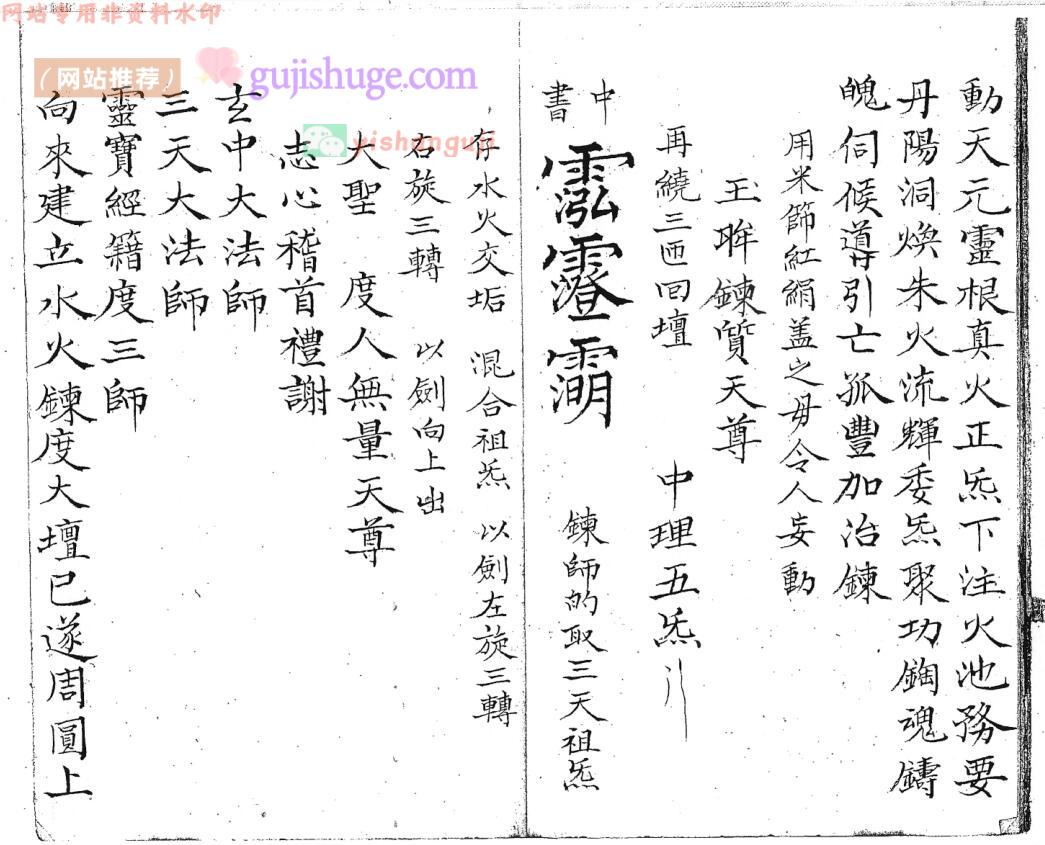 网站专用非资料水印
（网站推荐）
gujishuge.com
yishanguji
動天元靈根真火正炁下注火池務要
丹陽洞煥朱火流輝委炁聚功鋾魂鑄
魄伺候導引亡孤豐加冶鍊
用米篩紅絹盖之毋令人妄動
玉眸鍊質天尊
再繞三匝回壇 中理五炁
中書
鍊師的取三天祖炁
存水火交垢 混合祖炁 以劍左旋三轉
右旋三轉 以劍向上出
大聖 度人無量天尊
志心稽首禮謝
玄中大法師
三天大法師
靈寶經籍度三師
向來建立水火鍊度大壇已遂周圓上